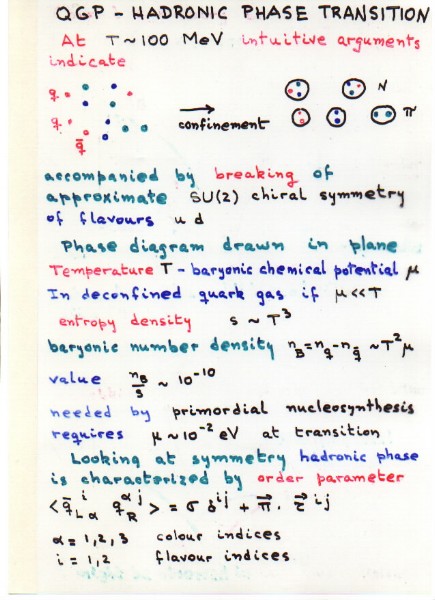 QGP - HADRONIC PHASE TRANSITION
At T ~ 100 MeV intuitive arguments
indicate
q
q
q̄
confinement
N
π
accompanied by breaking of
approximate SU(2) chiral symmetry
of flavours u d
Phase diagram drawn in plane
Temperature T - baryonic chemical potential μ
In deconfined quark gas if μ<<T
entropy density s ~ T³
baryonic number density n_B = n_q - n_q̄ ~ T²μ
value n_B/s ~ 10⁻¹⁰
needed by primordial nucleosynthesis
requires μ ~ 10⁻² eV at transition
Looking at symmetry hadronic phase
is characterized by order parameter
< q̄_{Lα}^i q_R^{αj} > = σ δ^{ij} + π⃗ . τ⃗^{ij}
α = 1,2,3 colour indices
i = 1,2 flavour indices